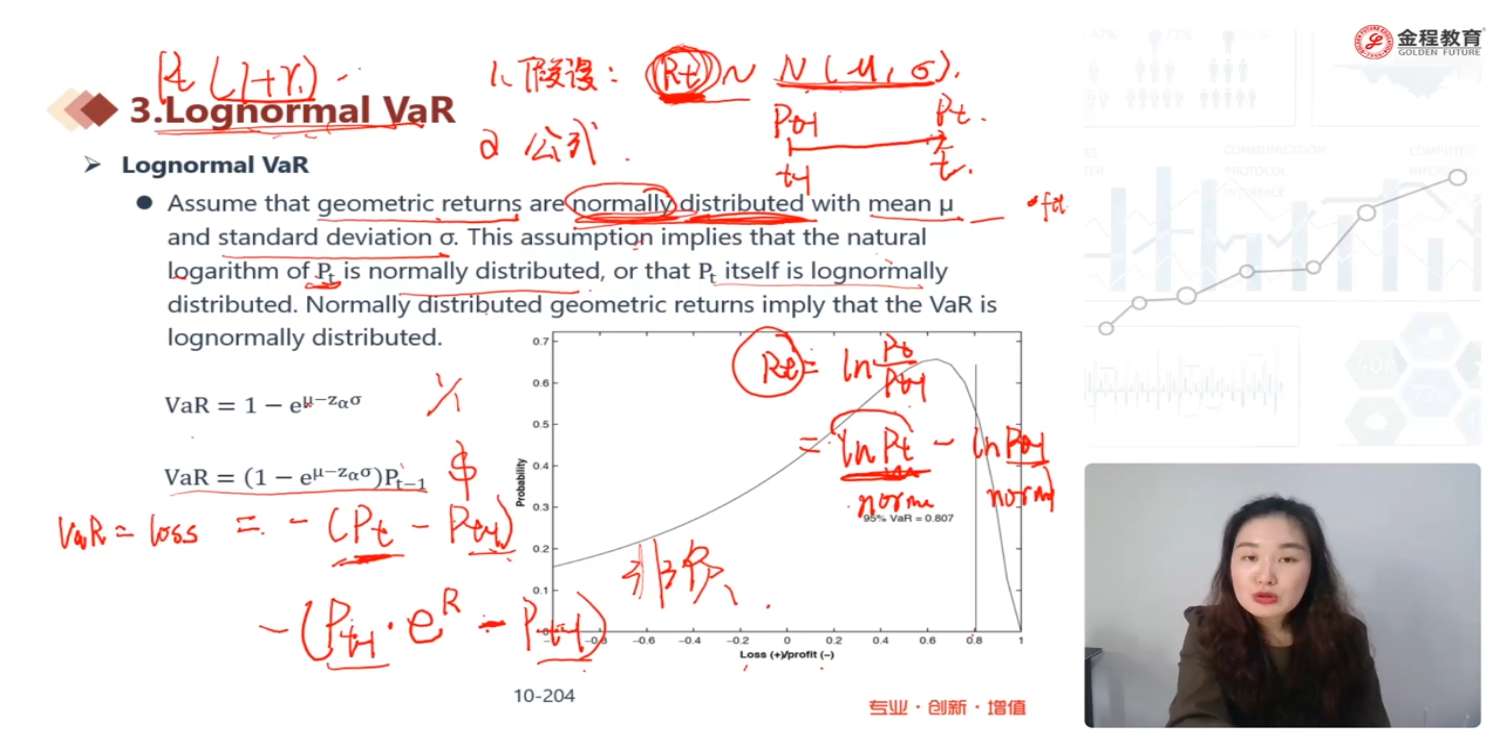 金程教育
GOLDEN FUTURE
Pt (1+r)
1. 假设: Rt ~ N(μ, σ).
3.Lognormal VaR
2 公式.
Pt-1
Pt.
t-1
t.
Lognormal VaR
Assume that geometric returns are normally distributed with mean μ
and standard deviation σ. This assumption implies that the natural
logarithm of Pt is normally distributed, or that Pt itself is lognormally
distributed. Normally distributed geometric returns imply that the VaR is
lognormally distributed.
VaR = 1 − e^μ−zασ
VaR = (1 − e^μ−zασ)Pt−1 $
VaR = loss = - (Pt - Pt-1)
- (Pt-1 · e^R - Pt-1)
Rt = ln Pt/Pt-1
= ln Pt - ln Pt-1
norm
norm
非负
Probability
0.7
0.6
0.5
0.4
0.3
0.2
0.1
95% VaR = 0.807
−0.6 −0.4 −0.2 0 0.2 0.4 0.6 0.8 1
Loss (+)/profit (−)
10-204
专业·创新·增值